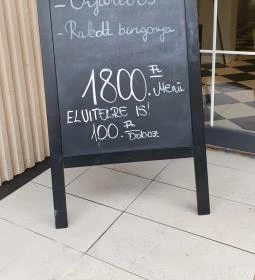 - Rakott burgonya
1800.- Ft Menü
ELVITELRE IS!
100.- Ft Doboz